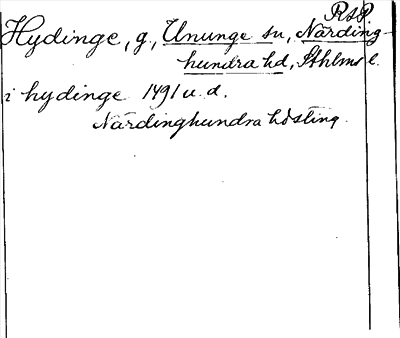 RAP.
Hydinge, g., Ununge sn, Närding-
hundra hd, Sthlms l.
i hydinge 1491 u. d.
Närdinghundra hdsting.